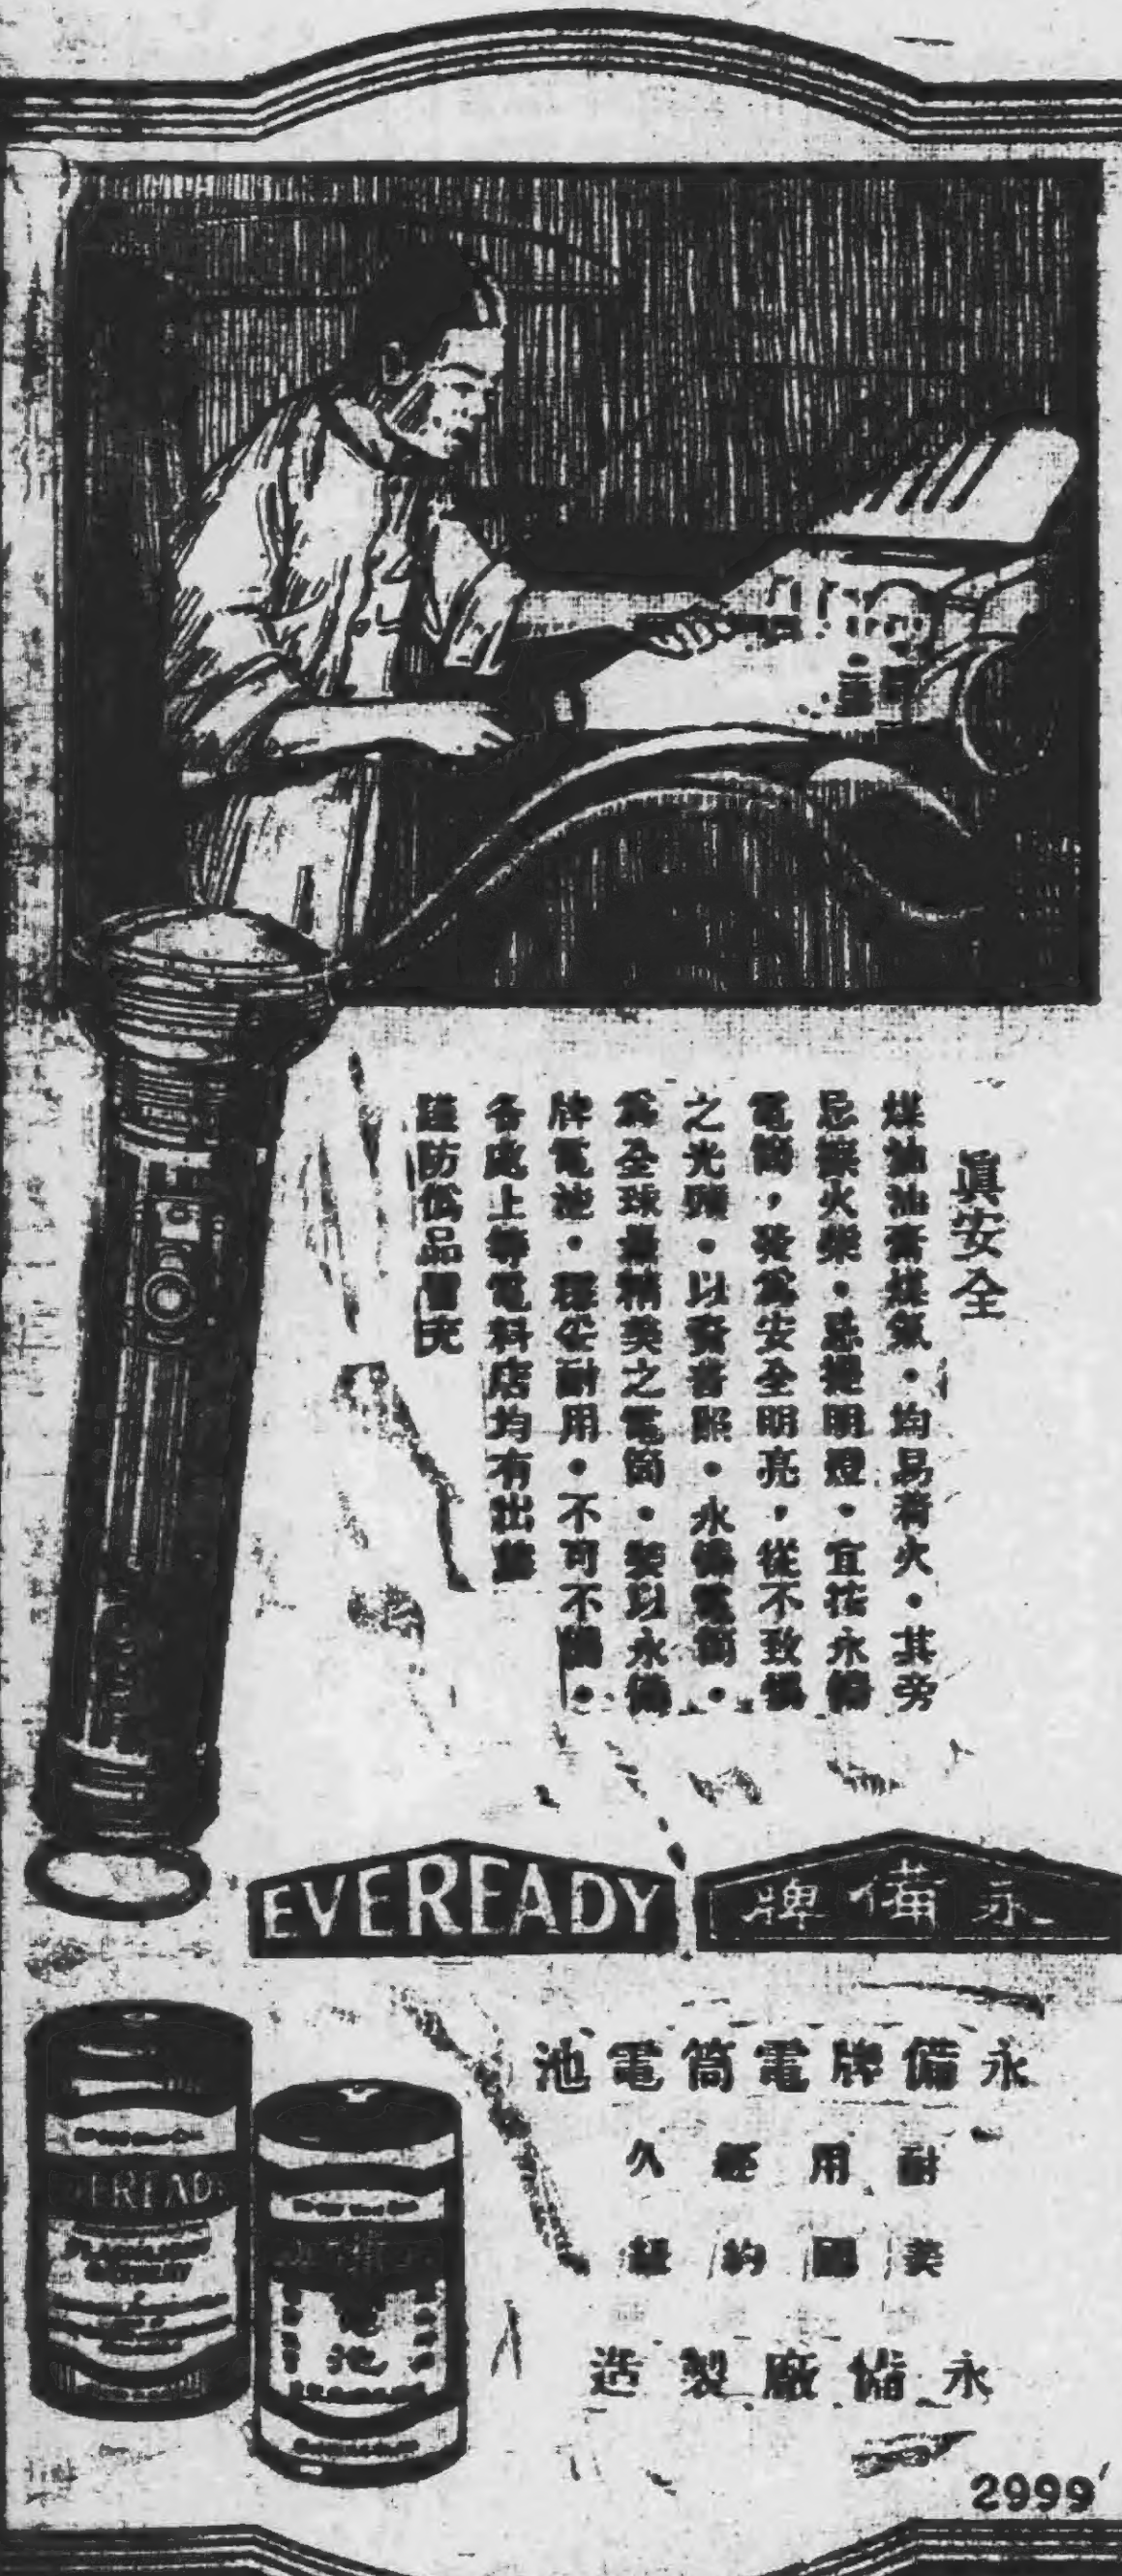 眞安全
煤油油膏煤氣・均易着火・其旁
忌擦火柴・忌提明燈・宜按永備
電筒，發爲安全明亮，從不致惧
之光頭・以資普照・永備電筒・
爲全球最精美之電筒・裝以永備
牌電池・堅牢耐用・不可不備・
各處上等電料店均有出售
謹防僞品冒充
EVEREADY
永備牌
永備牌電筒電池
耐用經久
美國紐約
永備廠製造
EREADY
電池
2999